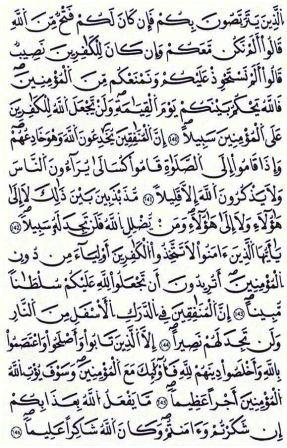 ٱلَّذِينَ يَتَرَبَّصُونَ بِكُمْ فَإِن كَانَ لَكُمْ فَتْحٌ مِّنَ ٱللَّهِ
قَالُوٓا۟ أَلَمْ نَكُن مَّعَكُمْ وَإِن كَانَ لِلْكَٰفِرِينَ نَصِيبٌ
قَالُوٓا۟ أَلَمْ نَسْتَحْوِذْ عَلَيْكُمْ وَنَمْنَعْكُم مِّنَ ٱلْمُؤْمِنِينَ
فَٱللَّهُ يَحْكُمُ بَيْنَكُمْ يَوْمَ ٱلْقِيَٰمَةِ وَلَن يَجْعَلَ ٱللَّهُ لِلْكَٰفِرِينَ
عَلَى ٱلْمُؤْمِنِينَ سَبِيلًا ١٤١ إِنَّ ٱلْمُنَٰفِقِينَ يُخَٰدِعُونَ ٱللَّهَ وَهُوَ خَٰدِعُهُمْ
وَإِذَا قَامُوٓا۟ إِلَى ٱلصَّلَوٰةِ قَامُوا۟ كُسَالَىٰ يُرَآءُونَ ٱلنَّاسَ
وَلَا يَذْكُرُونَ ٱللَّهَ إِلَّا قَلِيلًا ١٤٢ مُّذَبْذَبِينَ بَيْنَ ذَٰلِكَ لَآ إِلَىٰ
هَٰٓؤُلَآءِ وَلَآ إِلَىٰ هَٰٓؤُلَآءِ وَمَن يُضْلِلِ ٱللَّهُ فَلَن تَجِدَ لَهُۥ سَبِيلًا ١٤٣
يَٰٓأَيُّهَا ٱلَّذِينَ ءَامَنُوا۟ لَا تَتَّخِذُوا۟ ٱلْكَٰفِرِينَ أَوْلِيَآءَ مِن دُونِ
ٱلْمُؤْمِنِينَ أَتُرِيدُونَ أَن تَجْعَلُوا۟ لِلَّهِ عَلَيْكُمْ سُلْطَٰنًا
مُّبِينًا ١٤٤ إِنَّ ٱلْمُنَٰفِقِينَ فِى ٱلدَّرْكِ ٱلْأَسْفَلِ مِنَ ٱلنَّارِ
وَلَن تَجِدَ لَهُمْ نَصِيرًا ١٤٥ إِلَّا ٱلَّذِينَ تَابُوا۟ وَأَصْلَحُوا۟ وَٱعْتَصَمُوا۟
بِٱللَّهِ وَأَخْلَصُوا۟ دِينَهُمْ لِلَّهِ فَأُو۟لَٰٓئِكَ مَعَ ٱلْمُؤْمِنِينَ وَسَوْفَ يُؤْتِ ٱللَّهُ
ٱلْمُؤْمِنِينَ أَجْرًا عَظِيمًا ١٤٦ مَّا يَفْعَلُ ٱللَّهُ بِعَذَابِكُمْ
إِن شَكَرْتُمْ وَءَامَنتُمْ وَكَانَ ٱللَّهُ شَاكِرًا عَلِيمًا ١٤٧